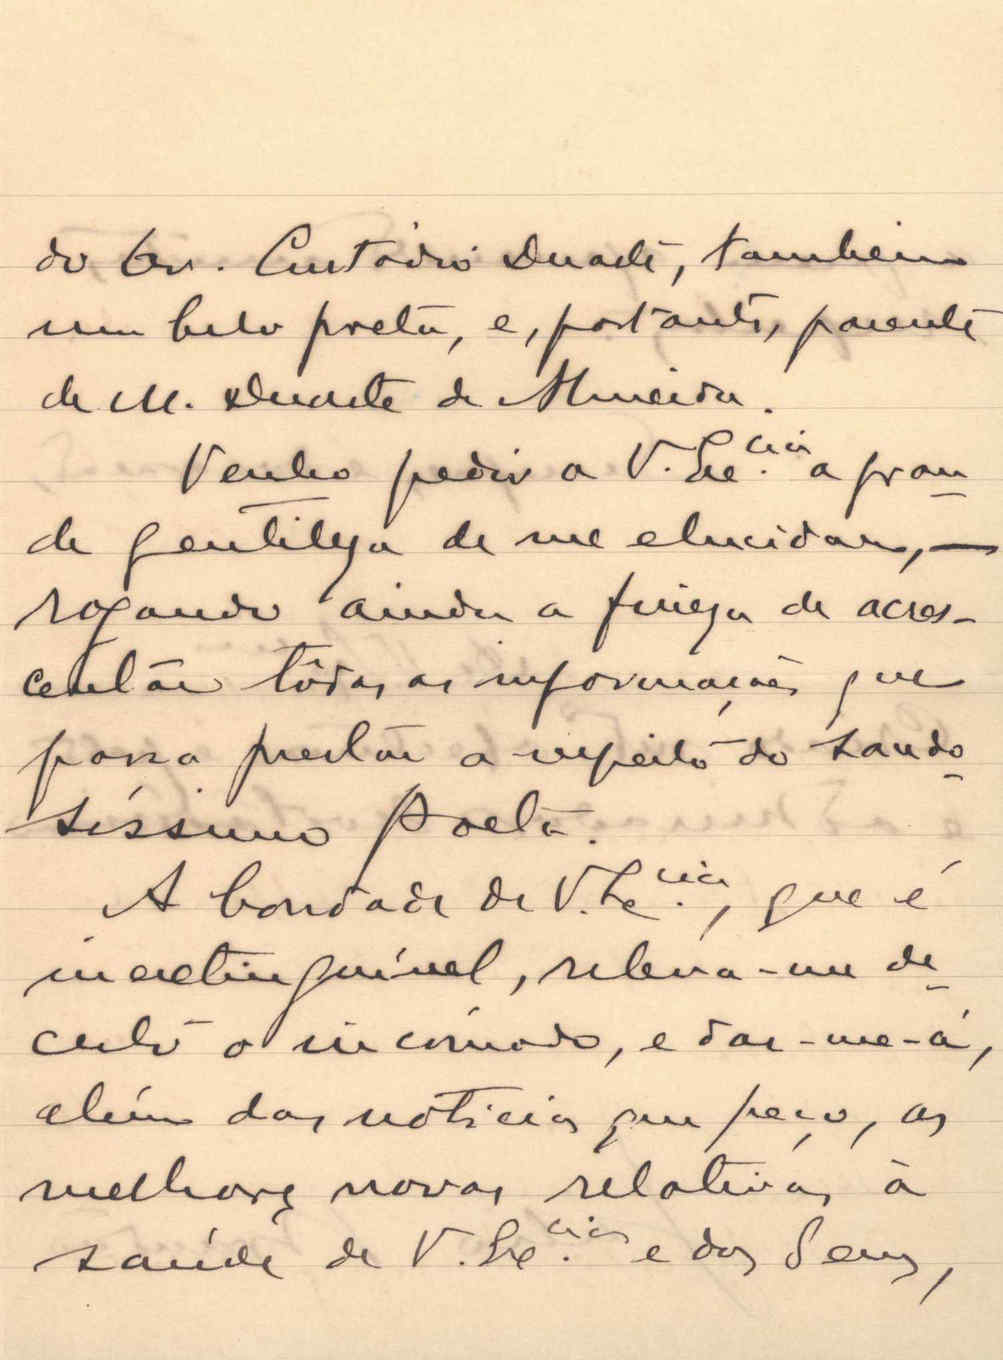 do Dr. Custódio Duarte, tambem
um belo poeta, e, portanto, parente
de M. Duarte de Almeida.
Venho pedir a V. Ex.cia a gran-
de gentileza de me elucidar, —
rogando ainda a fineza de acres-
centar tôdas as informações que
possa prestar a respeito do saudo-
síssimo Poeta.
A bondade de V. Ex.cia, que é
inextinguível, releva-me de-
certo o incómodo, e dar-me-á,
além das noticias que peço, as
melhores novas relativas à
saúde de V. Ex.cia e dos Seus,